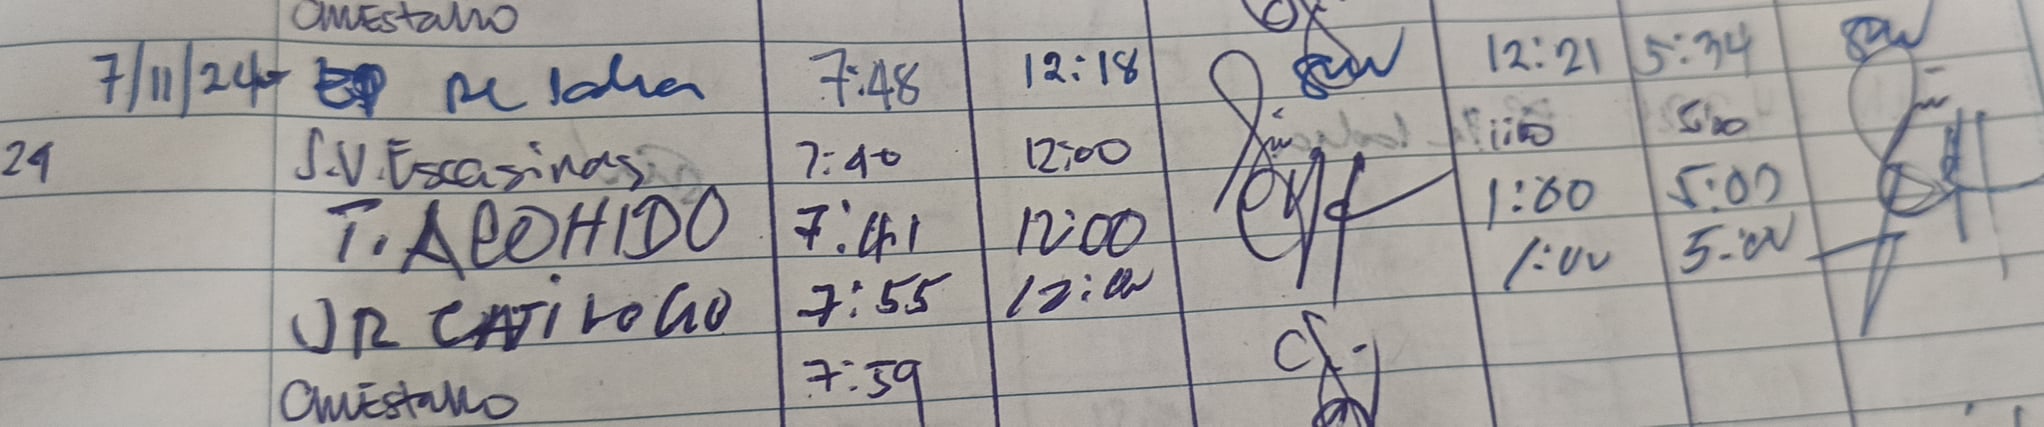 OMEstaMo
7/11/24 7:48 12:18 12:21 5:34
29 S.V. Escasinas 7:40 12:00 1:00 5:00
T. ALOHIDO 7:41 12:00 1:00 5:00
JR CATiLOGO 7:55 12:00 1:00 5:00
OMEstaMo 7:59